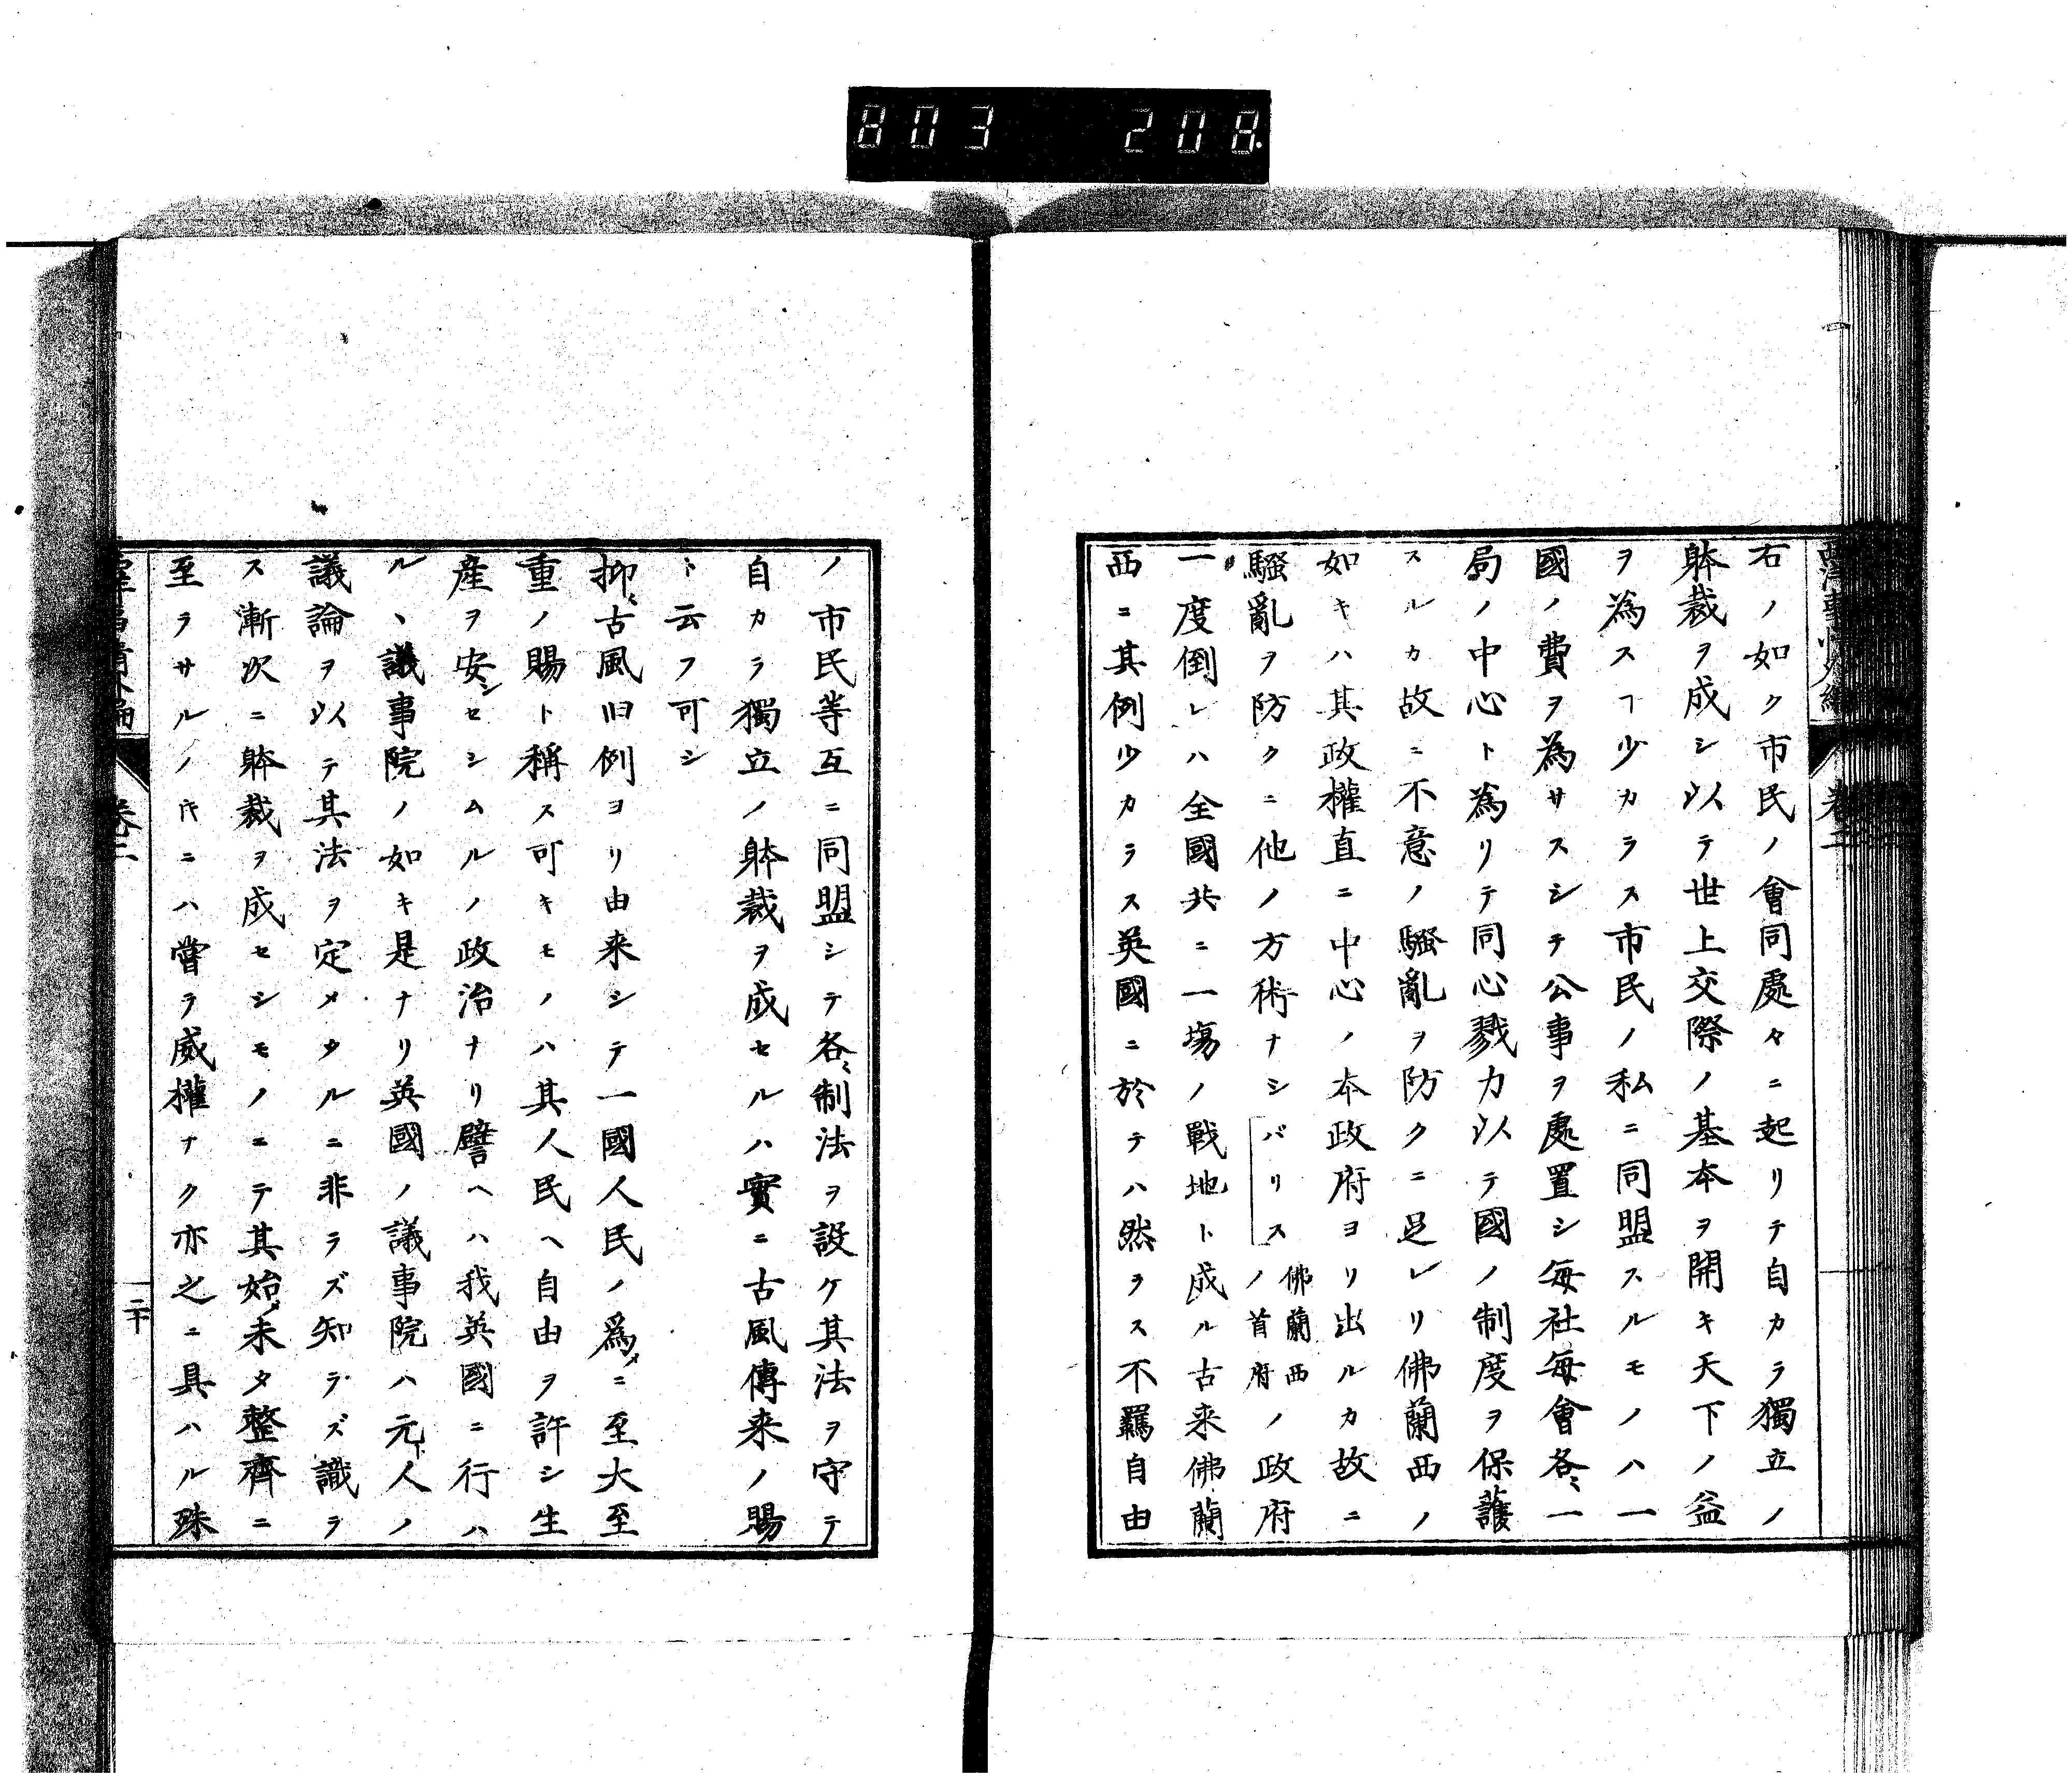 803 208.
西洋事情外編 卷二
右ノ如ク市民ノ會同處々ニ起リテ自カラ獨立ノ
躰裁ヲ成シ以テ世上交際ノ基本ヲ開キ天下ノ益
ヲ為スヿ少カラス市民ノ私ニ同盟スルモノハ一
國ノ費ヲ為サスシテ公事ヲ處置シ毎社毎會各〻一
局ノ中心ト為リテ同心戮力以テ國ノ制度ヲ保護
スルカ故ニ不意ノ騷亂ヲ防クニ足レリ佛蘭西ノ
如キハ其政權直ニ中心ノ本政府ヨリ出ルカ故ニ
騷亂ヲ防クニ他ノ方術ナシバリス佛蘭西ノ首府ノ政府
一度倒レハ全國共ニ一塲ノ戰地ト成ル古来佛蘭
西ニ其例少カラス英國ニ於テハ然ラス不羈自由
ノ市民等互ニ同盟シテ各〻制法ヲ設ケ其法ヲ守テ
自カラ獨立ノ躰裁ヲ成セルハ實ニ古風傳来ノ賜
ト云フ可シ
抑〻古風旧例ヨリ由来シテ一國人民ノ爲メニ至大至
重ノ賜ト稱ス可キモノハ其人民ヘ自由ヲ許シ生
産ヲ安シセシムルノ政治ナリ譬ヘハ我英國ニ行ハ
ルヽ議事院ノ如キ是ナリ英國ノ議事院ハ元ト人ノ
議論ヲ以テ其法ヲ定メタルニ非ラズ知ラズ識ラ
ス漸次ニ躰裁ヲ成セシモノニテ其始メ未タ整齊ニ
至ラサルノ𪜈ニハ嘗ラ威權ナク亦之ニ具ハル殊
卷二
二十